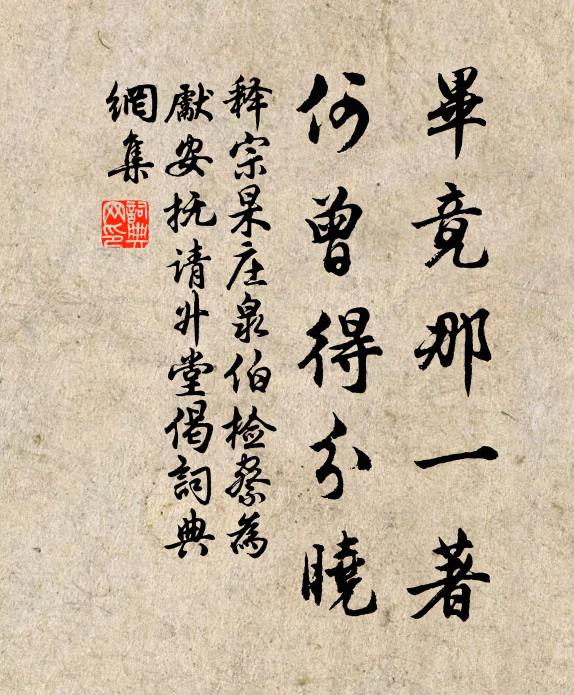 畢竟那一著
何曾得分曉
释宗杲庄泉伯检察為
獻安抚請升堂偈詞典
網集
詞典網印